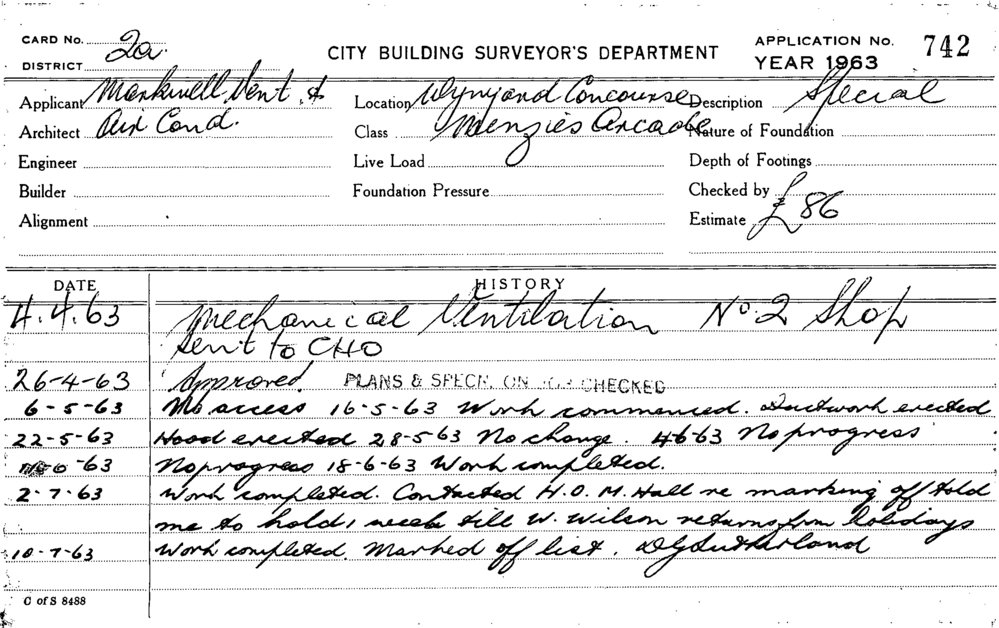 CARD No. 2a.
DISTRICT
CITY BUILDING SURVEYOR'S DEPARTMENT
APPLICATION No. 742
YEAR 1963
Applicant Markwell Vent. &
Location Wynyard Concourse
Description Special
Architect Air Cond.
Class Menzies Arcade
Nature of Foundation
Engineer
Live Load
Depth of Footings
Builder
Foundation Pressure
Checked by
Alignment
Estimate £86
DATE HISTORY
4.4.63 Mechanical Ventilation No. 2 Shop
Sent to CHO
26-4-63 Approved. PLANS & SPECN. ON CHECKED
6-5-63 No access 16-5-63 Work commenced. Ductwork erected
22-5-63 Hood erected 28-5-63 No change. 4-6-63 No progress
-63 No progress 18-6-63 Work completed.
2-7-63 Work completed. Contacted H.O. M. Hall re marking off told
me to hold 1 week till W. Wilson returns from holidays
10-7-63 Work completed. Marked off list. D G Sutherland
C of S 8488